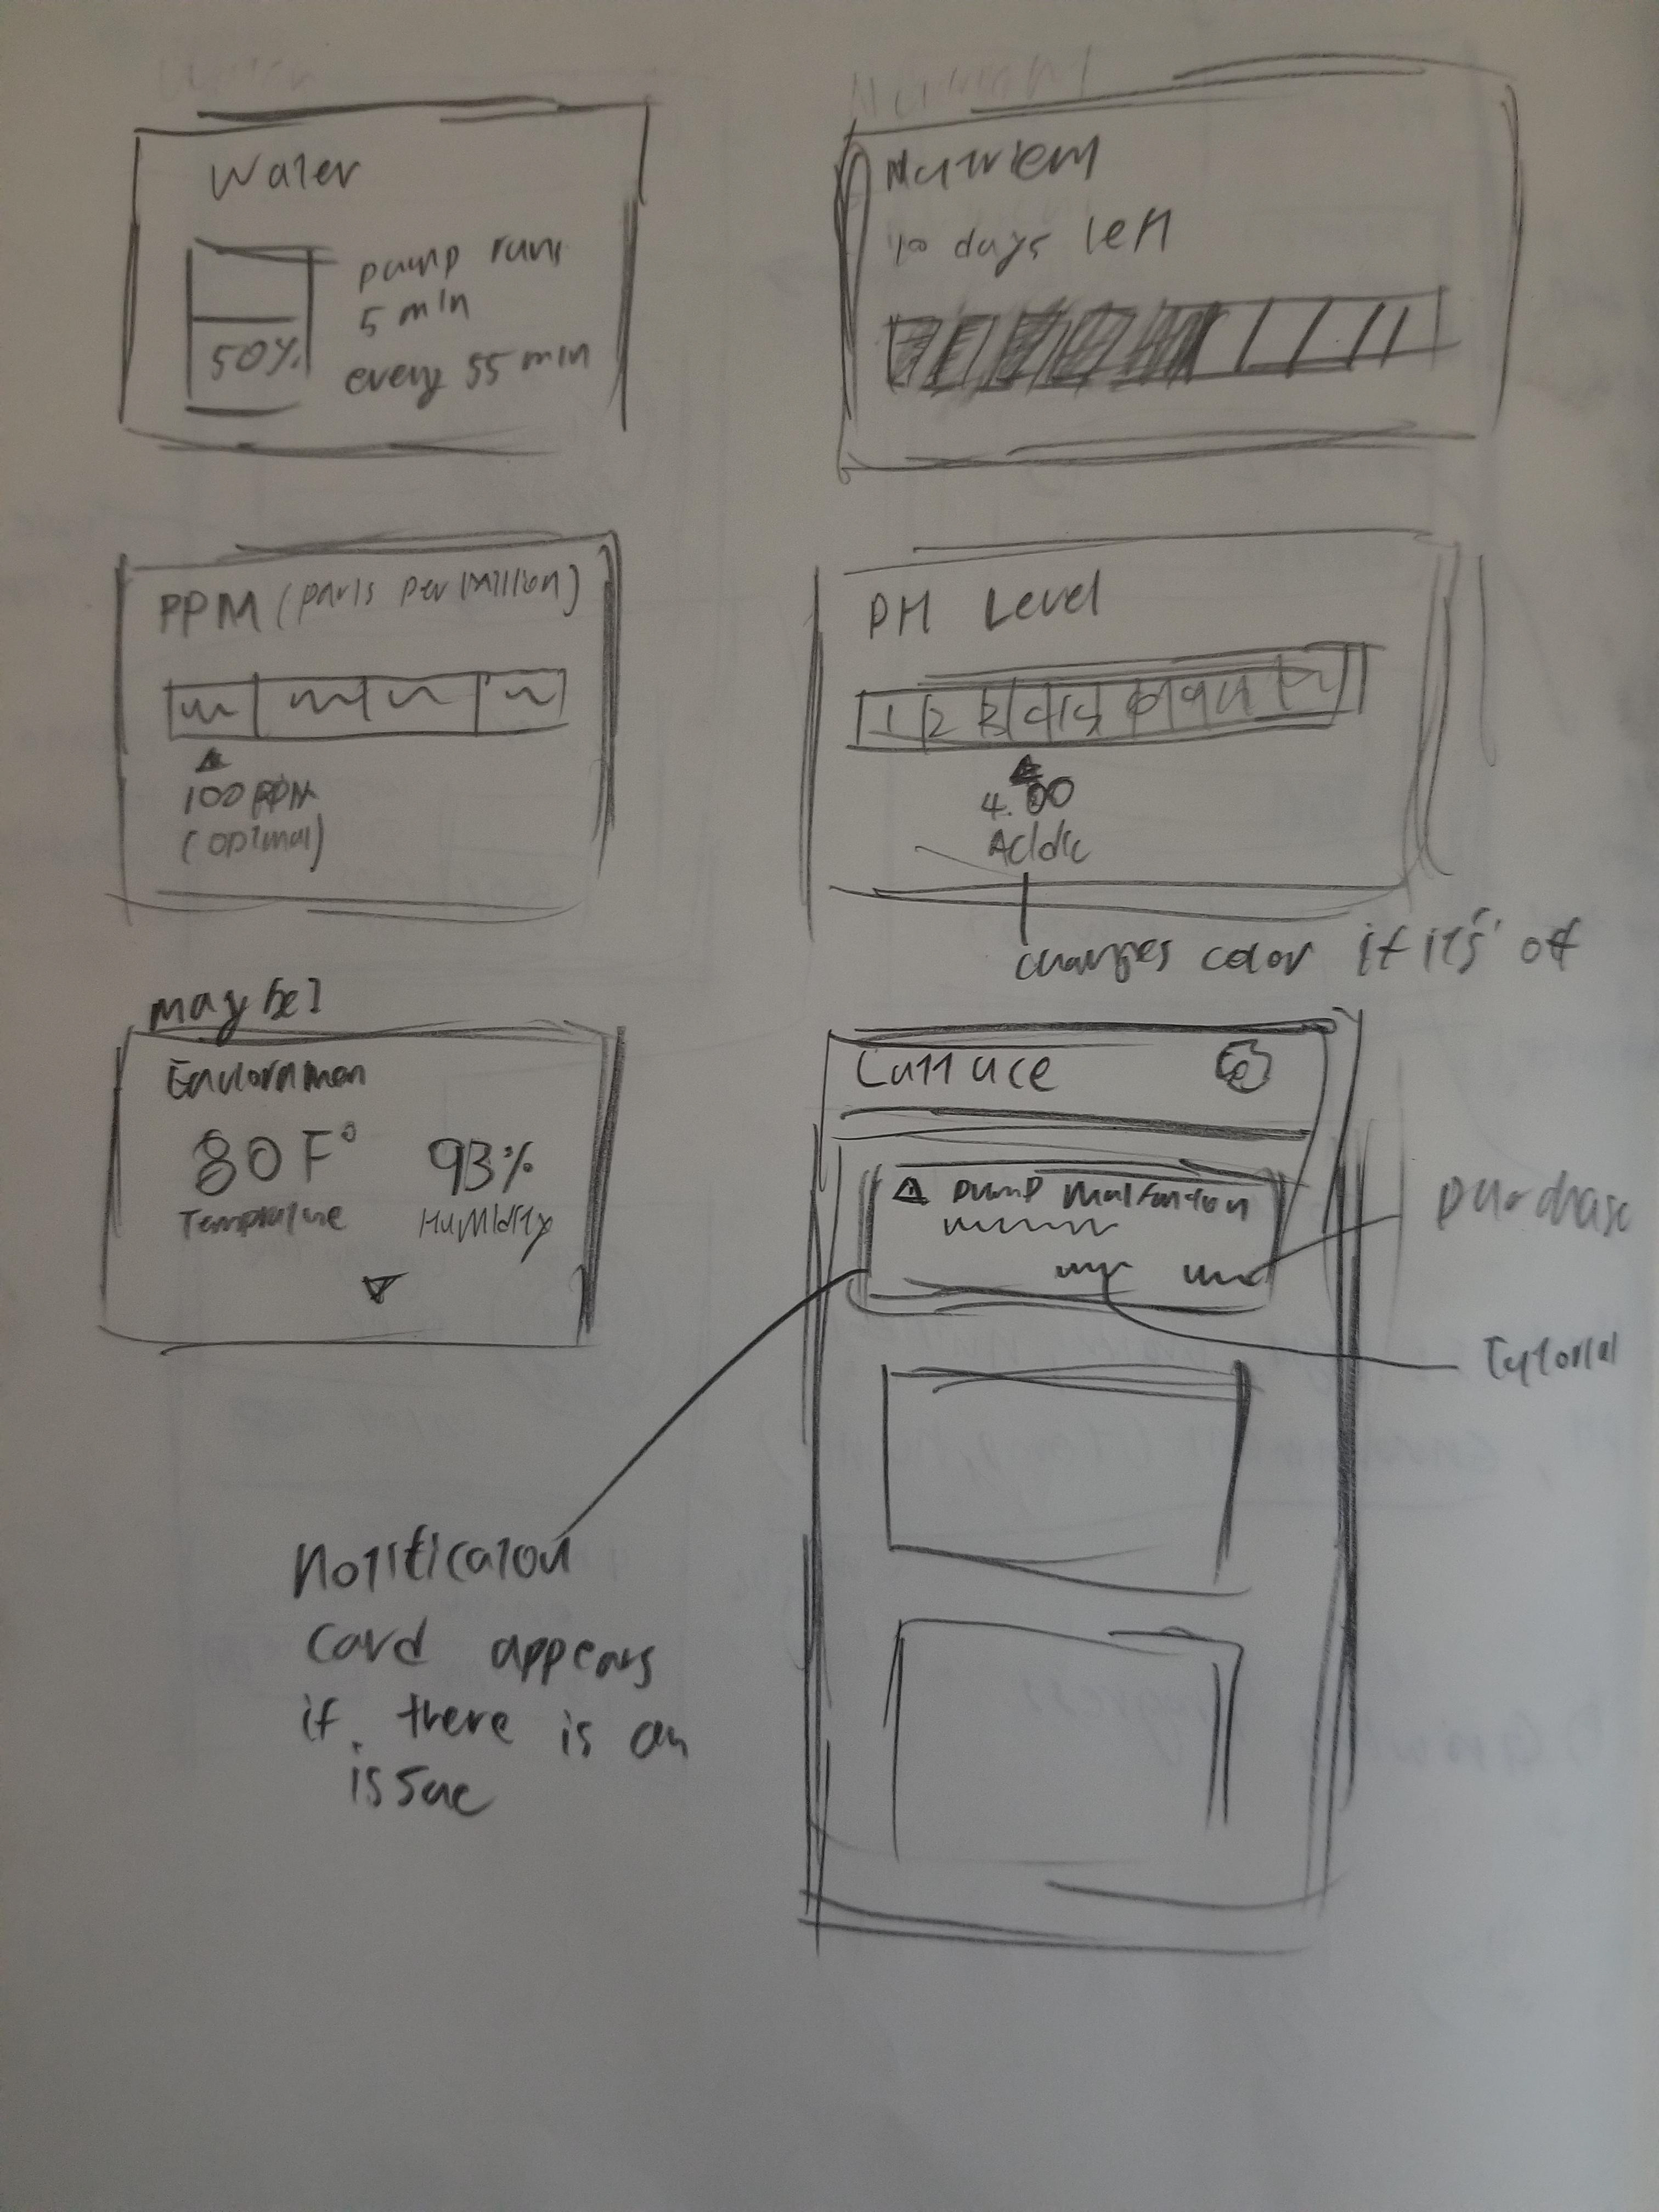 Water
pump runs
5 min
every 55 min
50%
Nutrient
days left
PPM (parts per million)
100 PPM
(optimal)
PH Level
1 2 3 4 5
4.00
Acidic
changes color if it's off
maybe?
80 F°
93%
Temprature
Humidity
Lettuce
pump malfunction
purchase
Tutorial
Notification
card appears
if there is an
issue